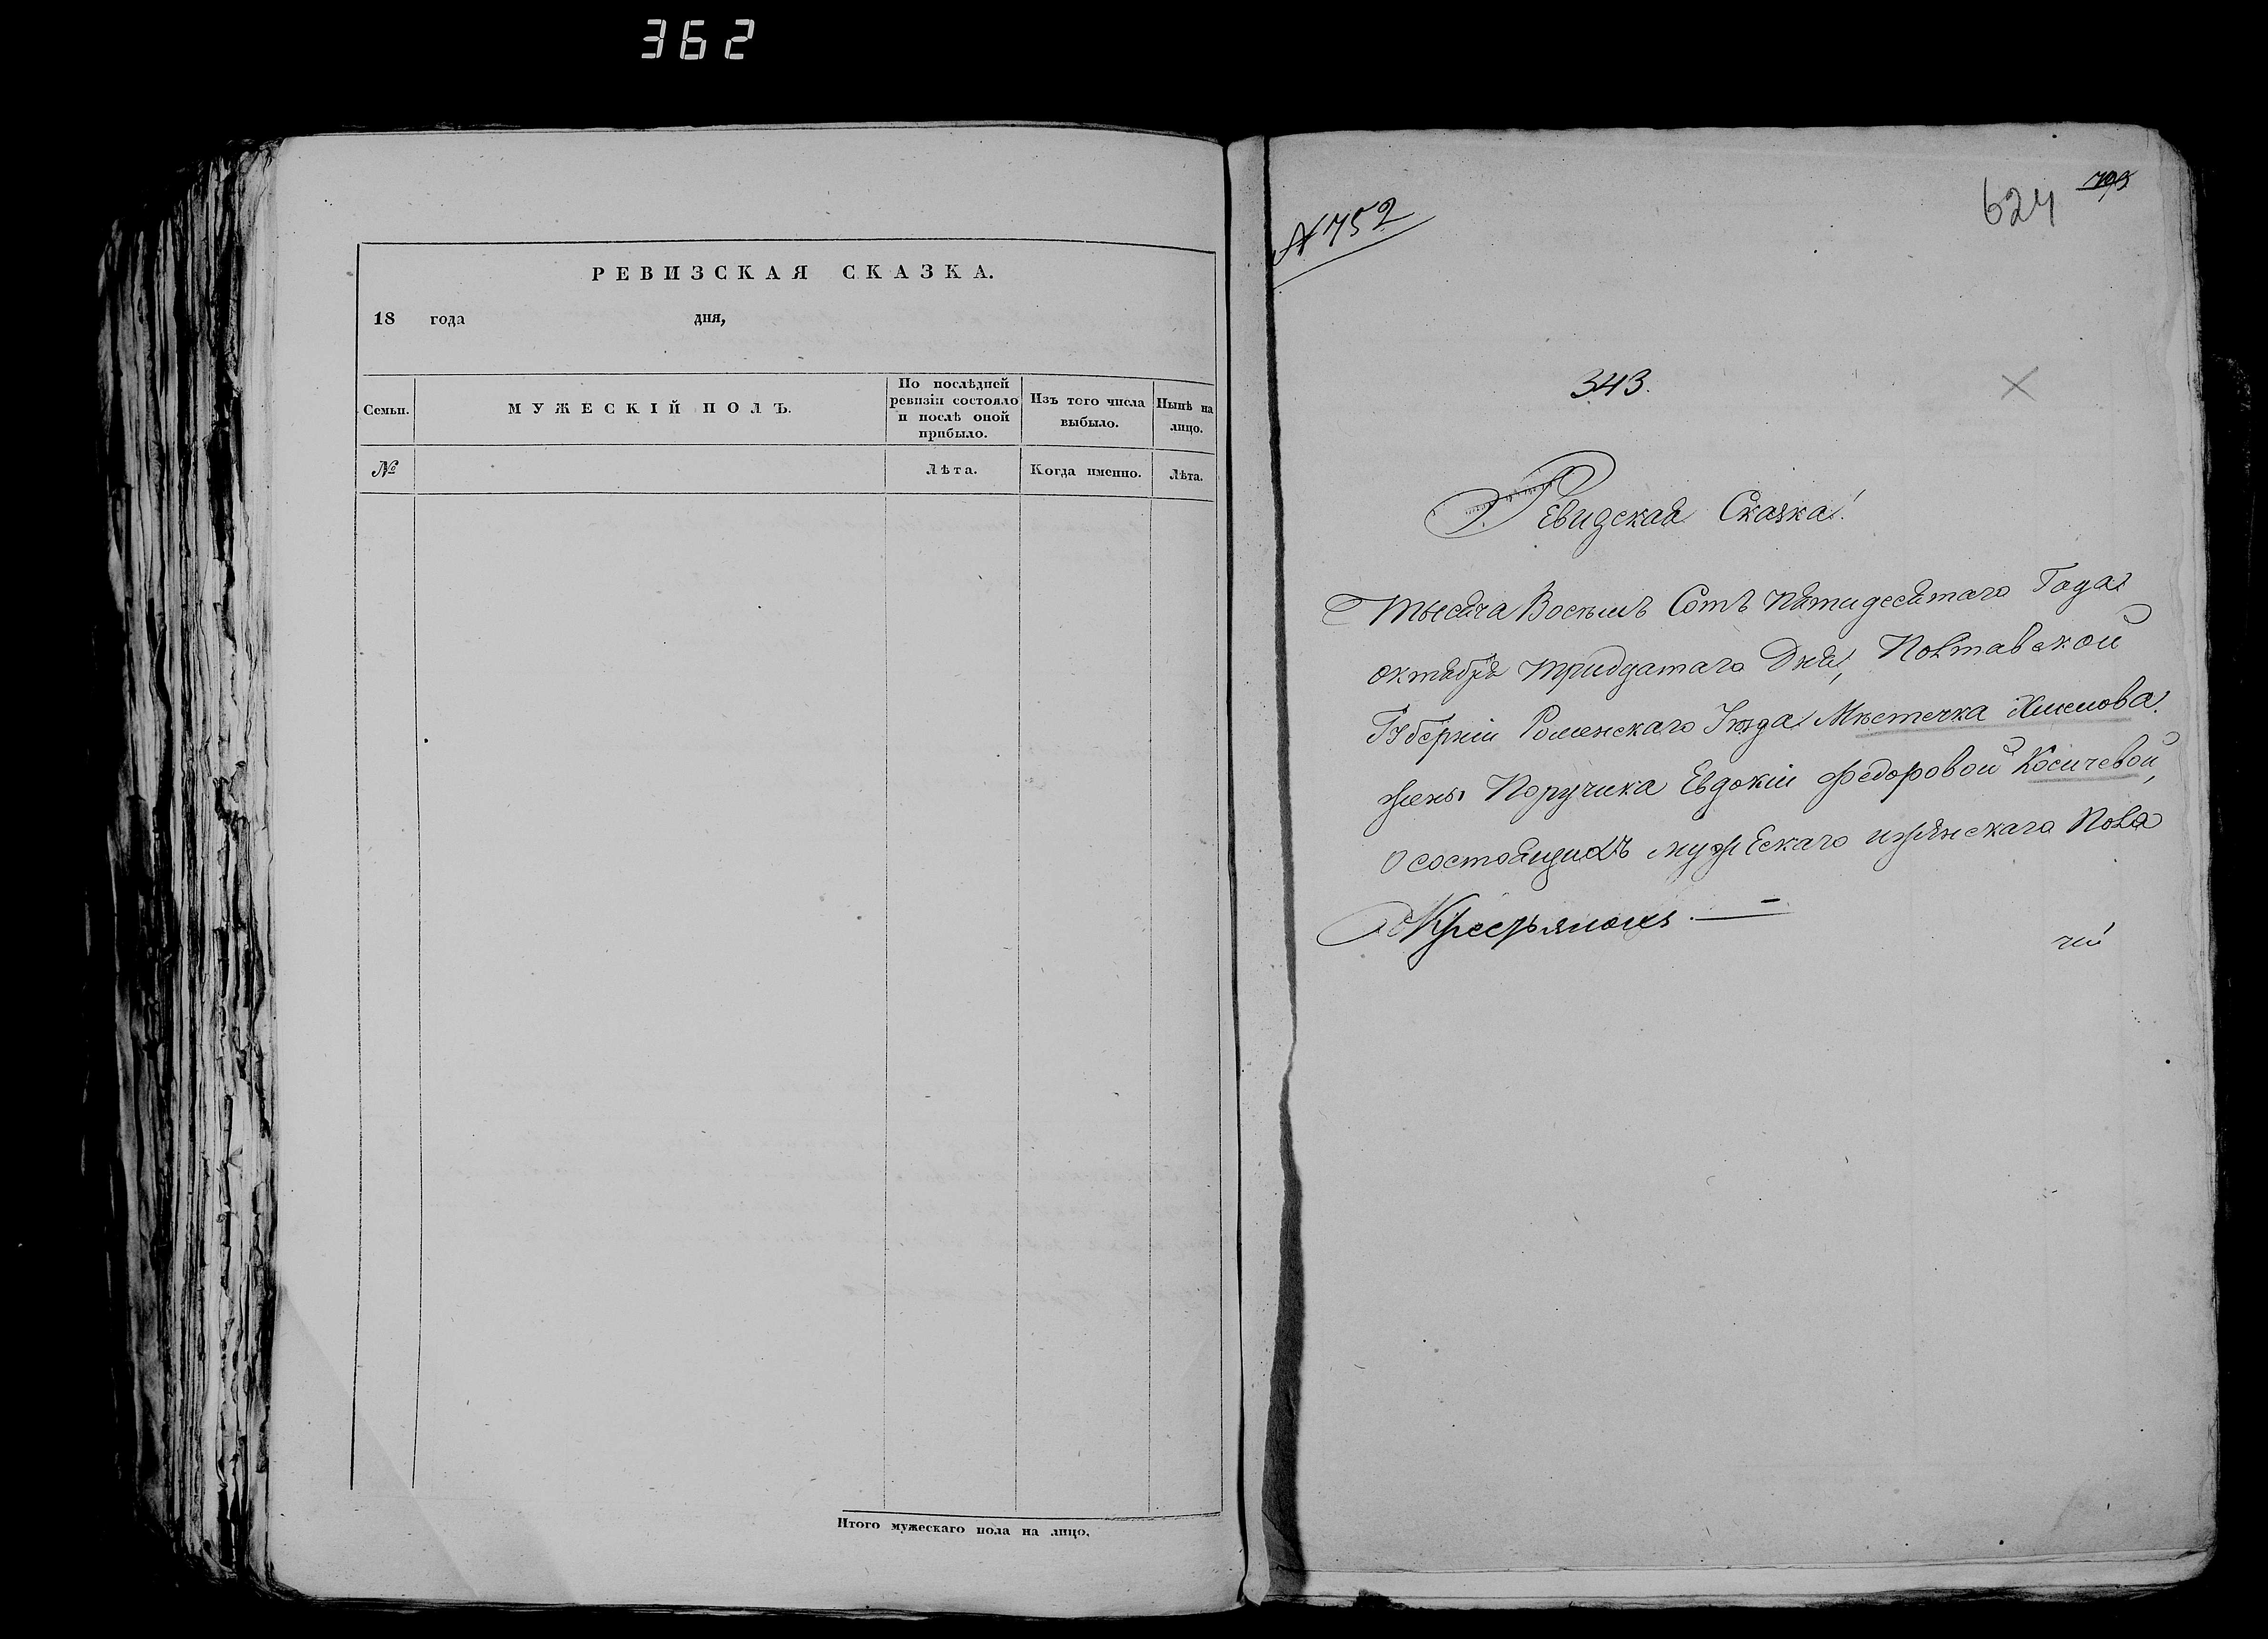 362
РЕВИЗСКАЯ СКАЗКА.
18 года дня,
Семьи. МУЖЕСКІЙ ПОЛЪ. По послѣдней ревизіи состояло и послѣ оной прибыло. Изъ того числа выбыло. Нынѣ на лицо.
№ Лѣта. Когда именно. Лѣта.
Итого мужескаго пола на лицо.
N 752
624
343.
Ревизская Сказка!
Тысяча Восемь Сотъ пятидесятого Года
октября тридцатаго Дня, Полтавской
Губерніи Роменскаго Уезда Мѣстечка Хмелова
жены Поручика Евдокіи Федоровой Косичевой,
О состоящихъ мужЕскаго и женскаго Пола
Крестьянахъ.